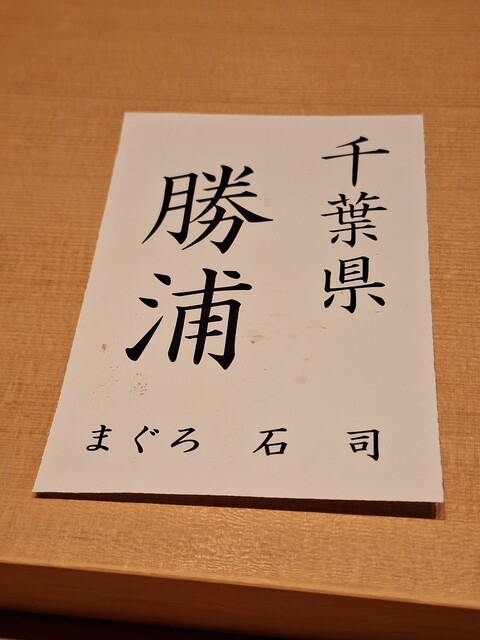 千葉県
勝浦
まぐろ 石司